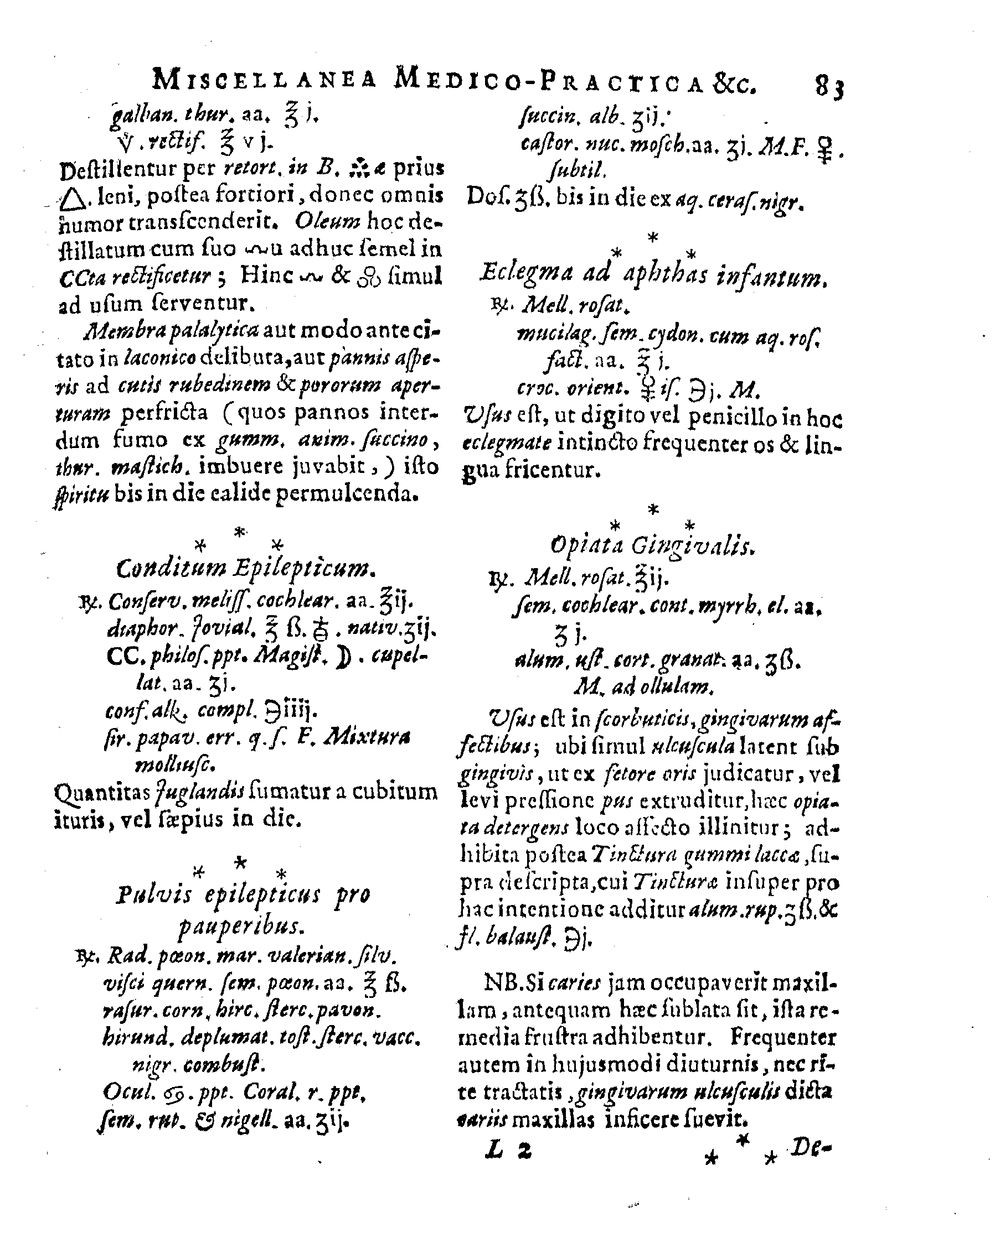 MISCELLANEA MEDICO-PRACTICA &c. 83
galban. thur. aa. ℥ j.
🜈. rectif. ℥ v j.
Deſtillentur per retort. in B. prius
🜂. leni, poſtea fortiori, donec omnis
humor tranſcenderit. Oleum hoc de-
ſtillatum cum ſuo 〰u adhuc ſemel in
CCta rectificetur; Hinc 〰 & ſimul
ad uſum ſerventur.
Membra palalytica aut modo ante ci-
tato in laconico delibuta, aut pannis aſpe-
ris ad cutis rubedinem & pororum aper-
turam perfricta (quos pannos inter-
dum fumo ex gumm. anim. ſuccino,
thur. maſtich. imbuere juvabit,) iſto
ſpiritu bis in die calide permulcenda.
* * *
Conditum Epilepticum.
℞. Conſerv. meliſſ. cochlear. aa. ℥ij.
diaphor. Jovial. ℥ ß. . nativ. ʒij.
CC. philoſ. ppt. Magiſt. ☽. cupel-
lat. aa. ʒj.
conf. alk. compl. ℈iiij.
ſir. papav. err. q. ſ. F. Mixtura
molliuſc.
Quantitas Juglandis ſumatur a cubitum
ituris, vel ſæpius in die.
* * *
Pulvis epilepticus pro
pauperibus.
℞. Rad. pœon. mar. valerian. ſilv.
viſci quern. ſem. pœon. aa. ℥ ß.
raſur. corn. hirc. ſterc. pavon.
hirund. deplumat. toſt. ſterc. vacc.
nigr. combuſt.
Ocul. ♋. ppt. Coral. r. ppt.
ſem. rut. & nigell. aa. ʒij.
ſuccin. alb. ʒij.
caſtor. nuc. moſch. aa. ʒj. M.F. .
ſubtil.
Doſ. ʒß. bis in die ex aq. ceraſ. nigr.
* * *
Eclegma ad aphthas infantum.
℞. Mell. roſat.
mucilag. ſem. cydon. cum aq. roſ.
fact. aa. ℥ j.
croc. orient. iſ. ℈j. M.
Uſus eſt, ut digito vel penicillo in hoc
eclegmate intincto frequenter os & lin-
gua fricentur.
* * *
Opiata Gingivalis.
℞. Mell. roſat. ℥ij.
ſem. cochlear. cont. myrrh. el. aa.
ʒ j.
alum. uſt. cort. granat. aa. ʒß.
M. ad ollulam.
Uſus eſt in ſcorbuticis, gingivarum af-
fectibus; ubi ſimul ulcuſcula latent ſub
gingivis, ut ex fetore oris judicatur, vel
levi preſſione pus extruditur, hæc opia-
ta detergens loco affecto illinitur; ad-
hibita poſtea Tinctura gummi laccæ, ſu-
pra deſcripta, cui Tincturæ inſuper pro
hac intentione additur alum. rup. ʒß. &
fl. balauſt. ℈j.
NB. Si caries jam occupaverit maxil-
lam, antequam hæc ſublata ſit, iſta re-
media fruſtra adhibentur. Frequenter
autem in hujusmodi diuturnis, nec ri-
te tractatis, gingivarum ulcuſculis dicta
cariis maxillas inficere ſuevit.
L 2 * * * De-